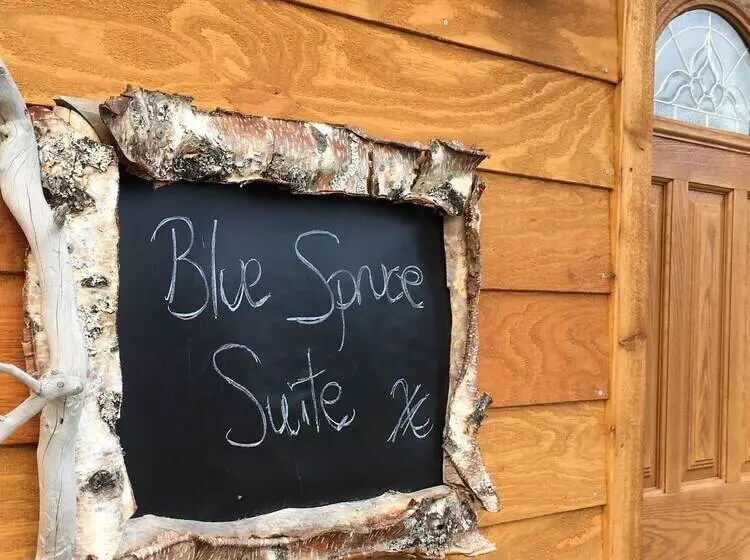 Blue Spruce
Suite